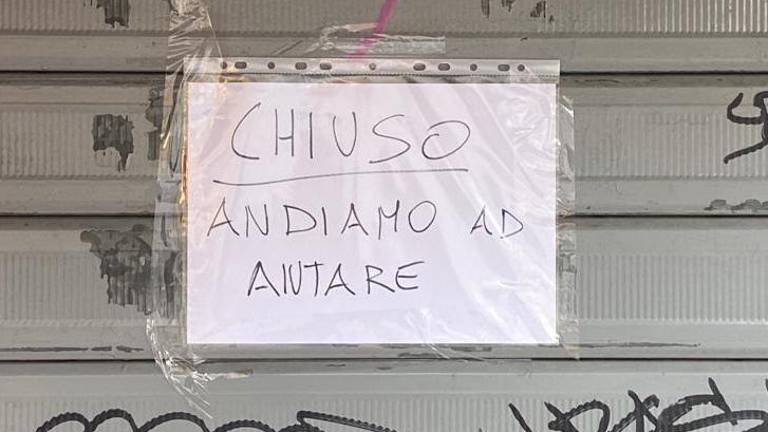 CHIUSO
ANDIAMO AD
AIUTARE